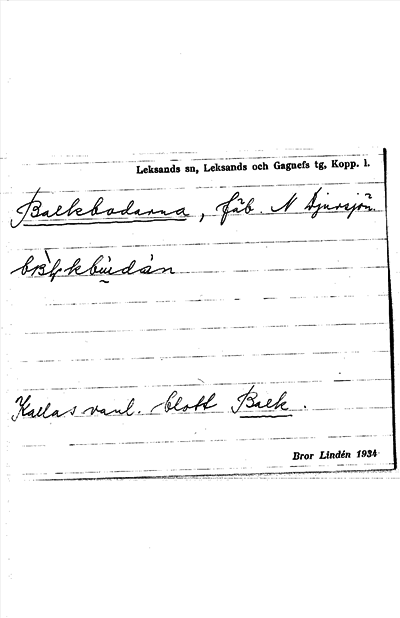 Leksands sn, Leksands och Gagnefs tg, Kopp. l.
Balkbodarna, fäb. N Djursjön
Kallas vanl. blott Balk.
Bror Lindén 1934